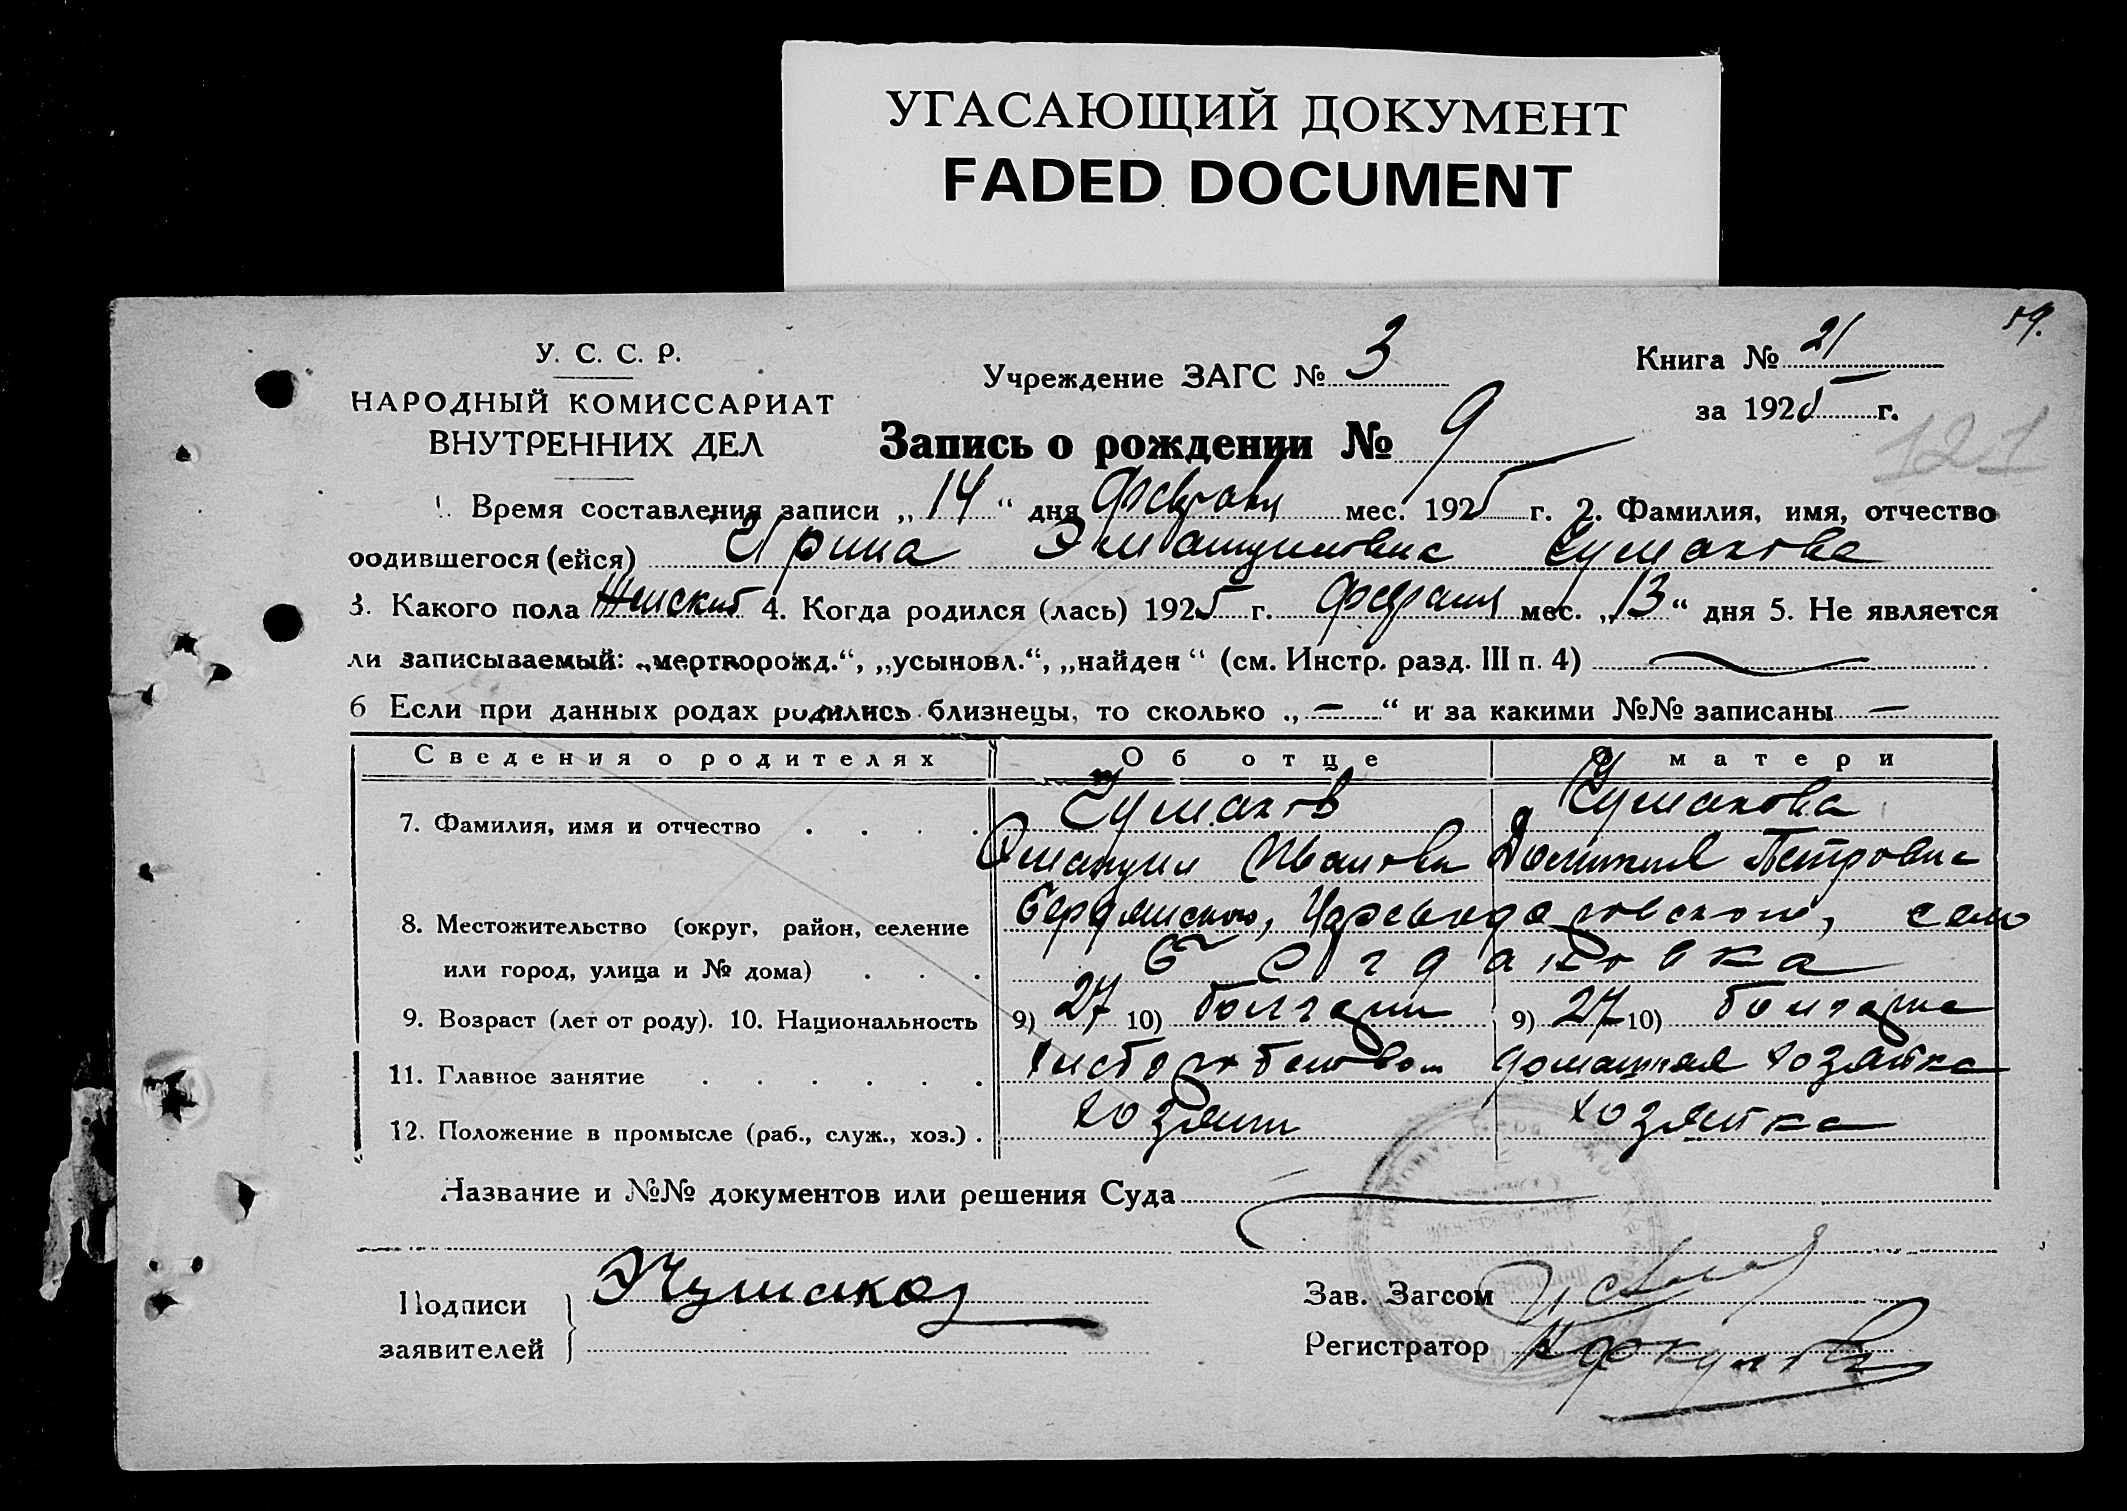 УГАСАЮЩИЙ ДОКУМЕНТ
FADED DOCUMENT
59.
У. С. С. Р.
НАРОДНЫЙ КОМИССАРИАТ
ВНУТРЕННИХ ДЕЛ
Учреждение ЗАГС № 3
Книга № 21
за 1925 г.
121
Запись о рождении № 9
1. Время составления записи „14“ дня февраля мес. 1925 г. 2. Фамилия, имя, отчество
родившегося (ейся) Ирина Чумакова
3. Какого пола Женский 4. Когда родился (лась) 1925 г. февраля мес. „13“ дня 5. Не является
ли записываемый: „мертворожд.“, „усыновл.“, „найден“ (см. Инстр. разд. III п. 4) —
6 Если при данных родах родились близнецы, то сколько „—“ и за какими №№ записаны —
Сведения о родителях Об отце О матери
7. Фамилия, имя и отчество Чумаков Чумакова
Иванович Петровна
8. Местожительство (округ, район, селение Бердянского, село
или город, улица и № дома) Богдановка
9. Возраст (лет от роду). 10. Национальность 9) 27 10) болгарин 9) 27 10) болгарка
11. Главное занятие хлебопашеством домашняя хозяйка
12. Положение в промысле (раб., служ., хоз.) хозяин хозяйка
Название и №№ документов или решения Суда
Подписи заявителей Чумаков
Зав. Загсом
Регистратор